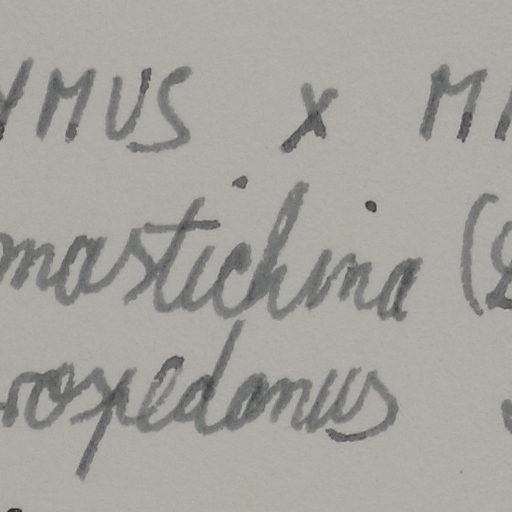 YMUS x MI
mastichina (L
rospedanus